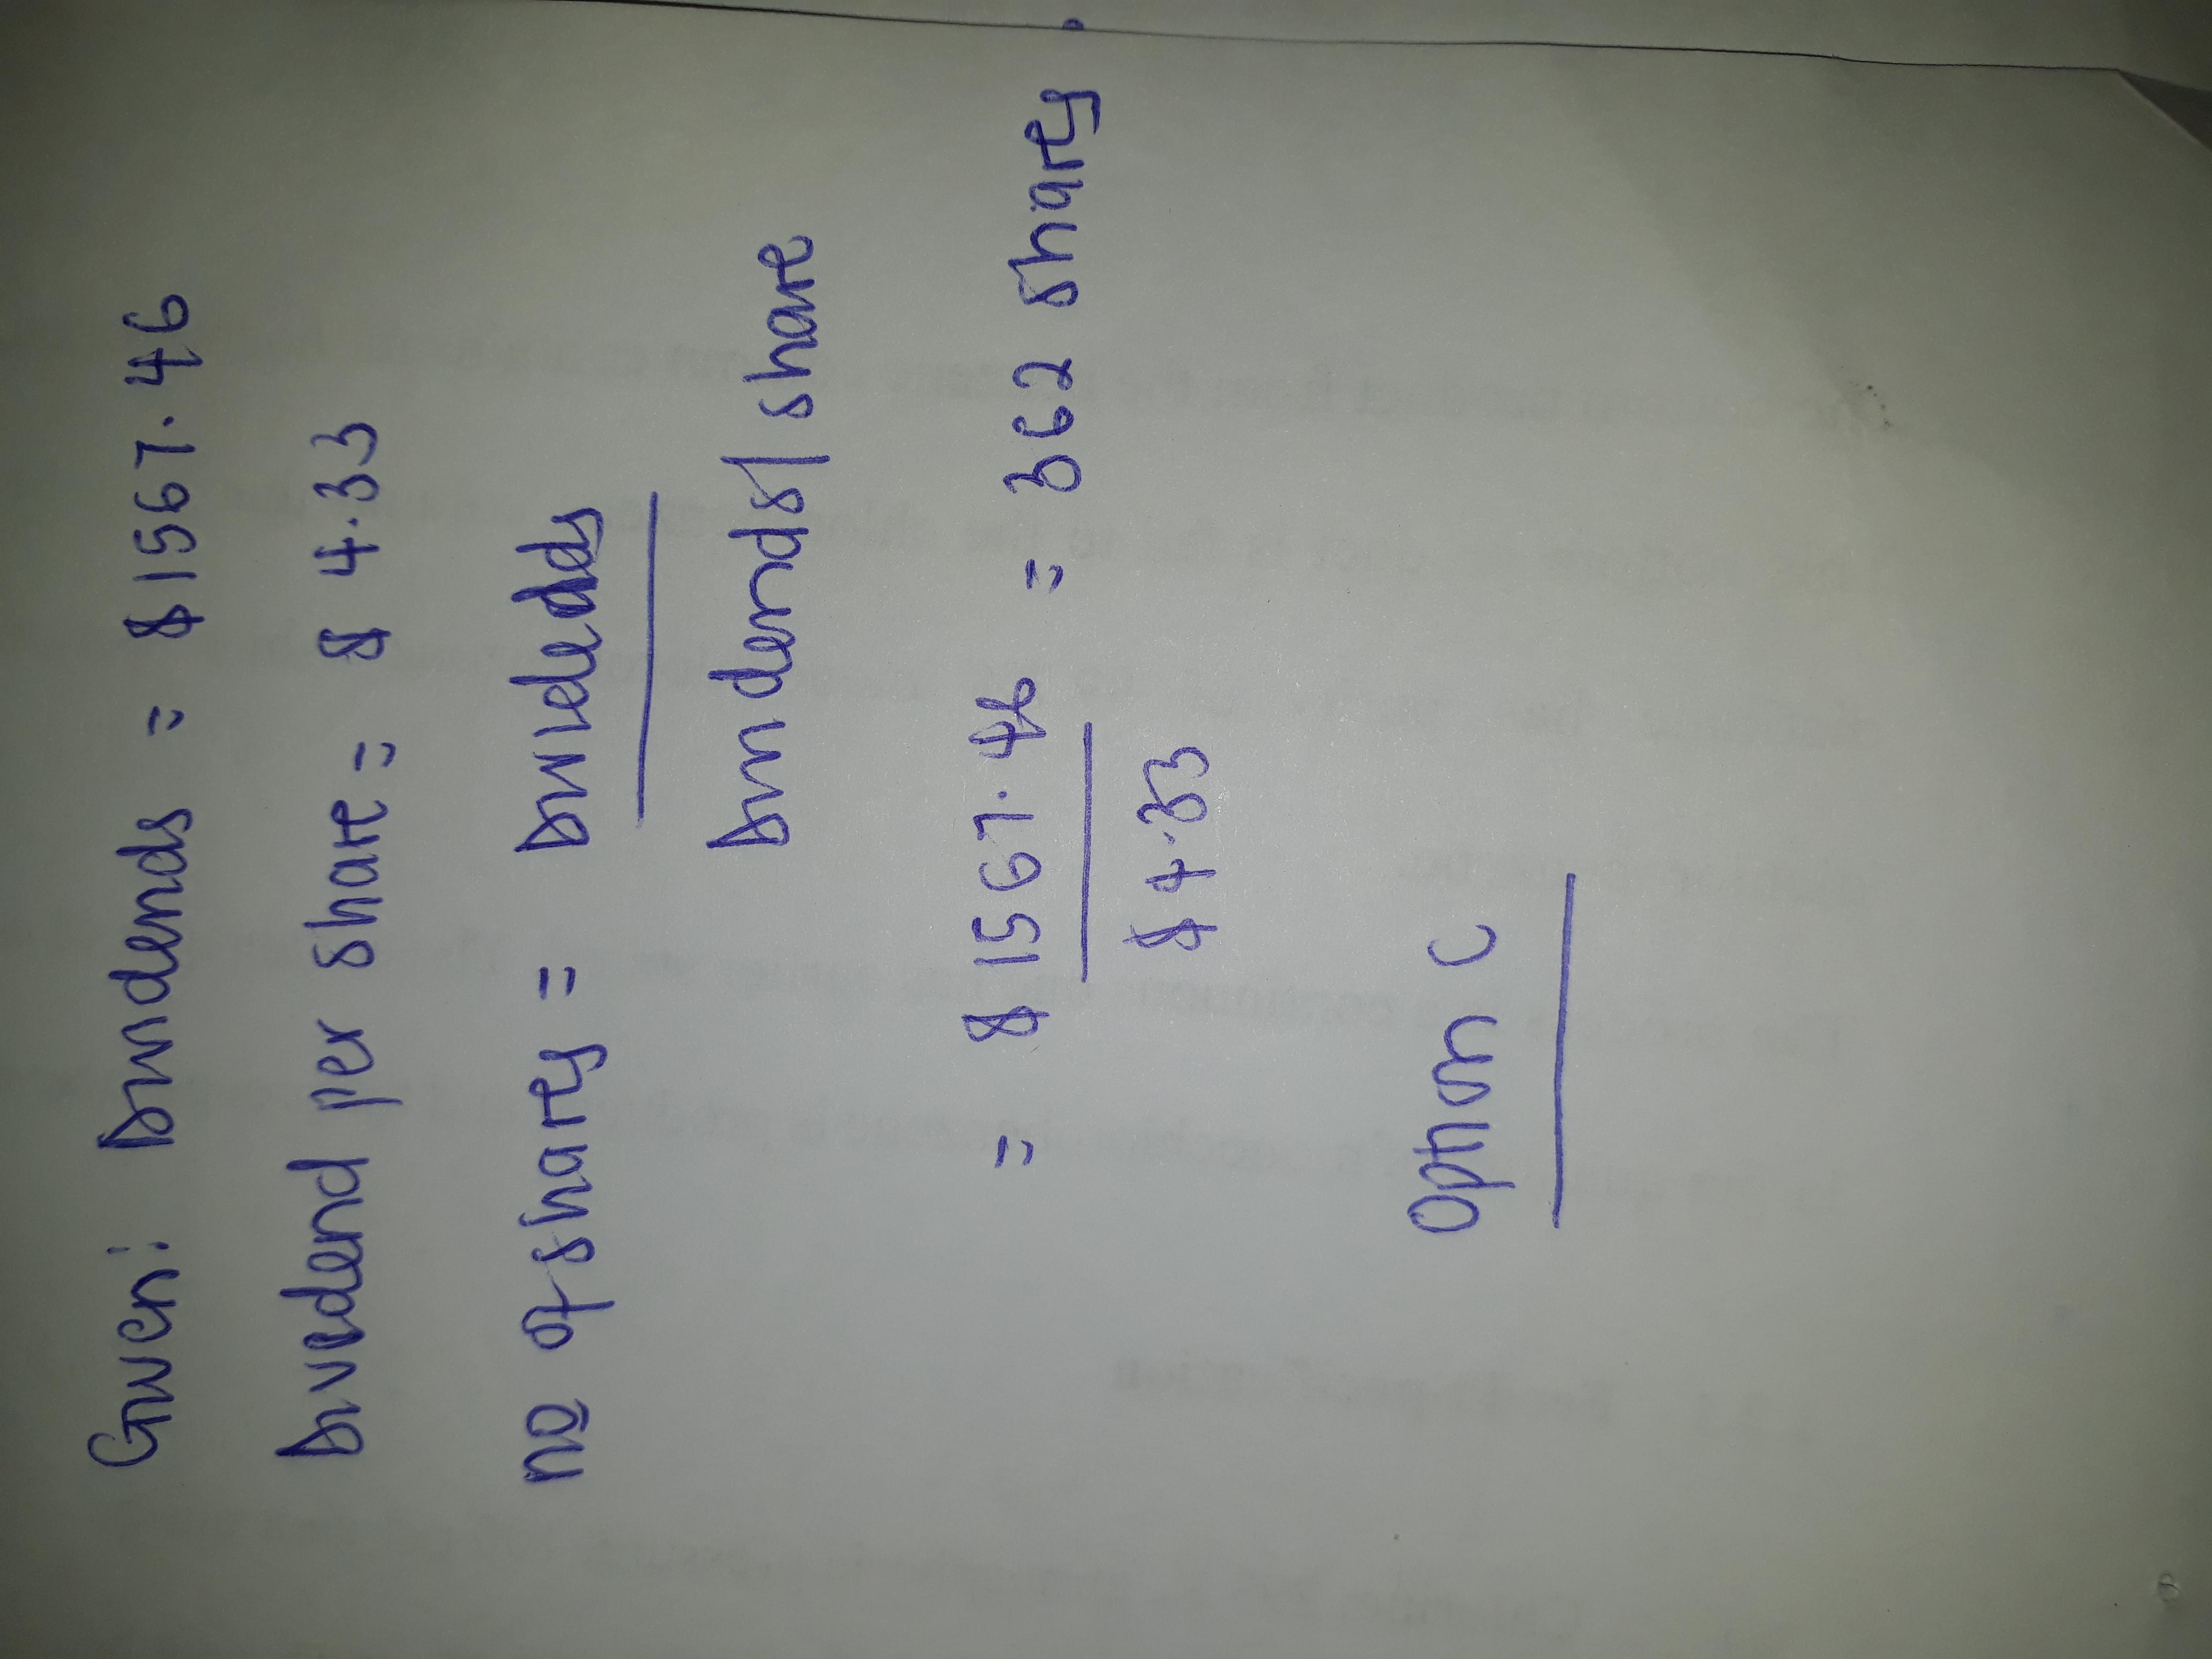 Given: Dividends = $1567.46
Dividend per share = $ 4.33
no of shares = Dividends
Dividends/share
= $1567.46 = 362 shares.
$4.33
Option C